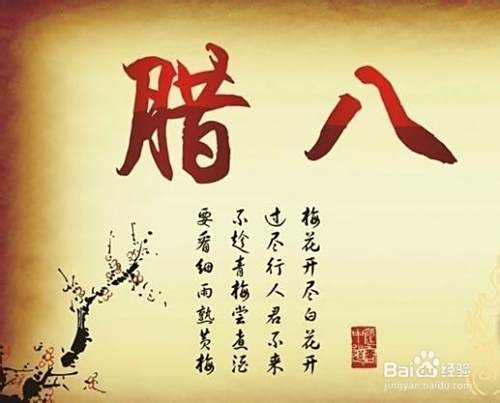 腊八
梅花开尽白花开
过尽行人君不来
不趁青梅尝煮酒
要看细雨熟黄梅
Baidu经验
jingyan.baidu.com